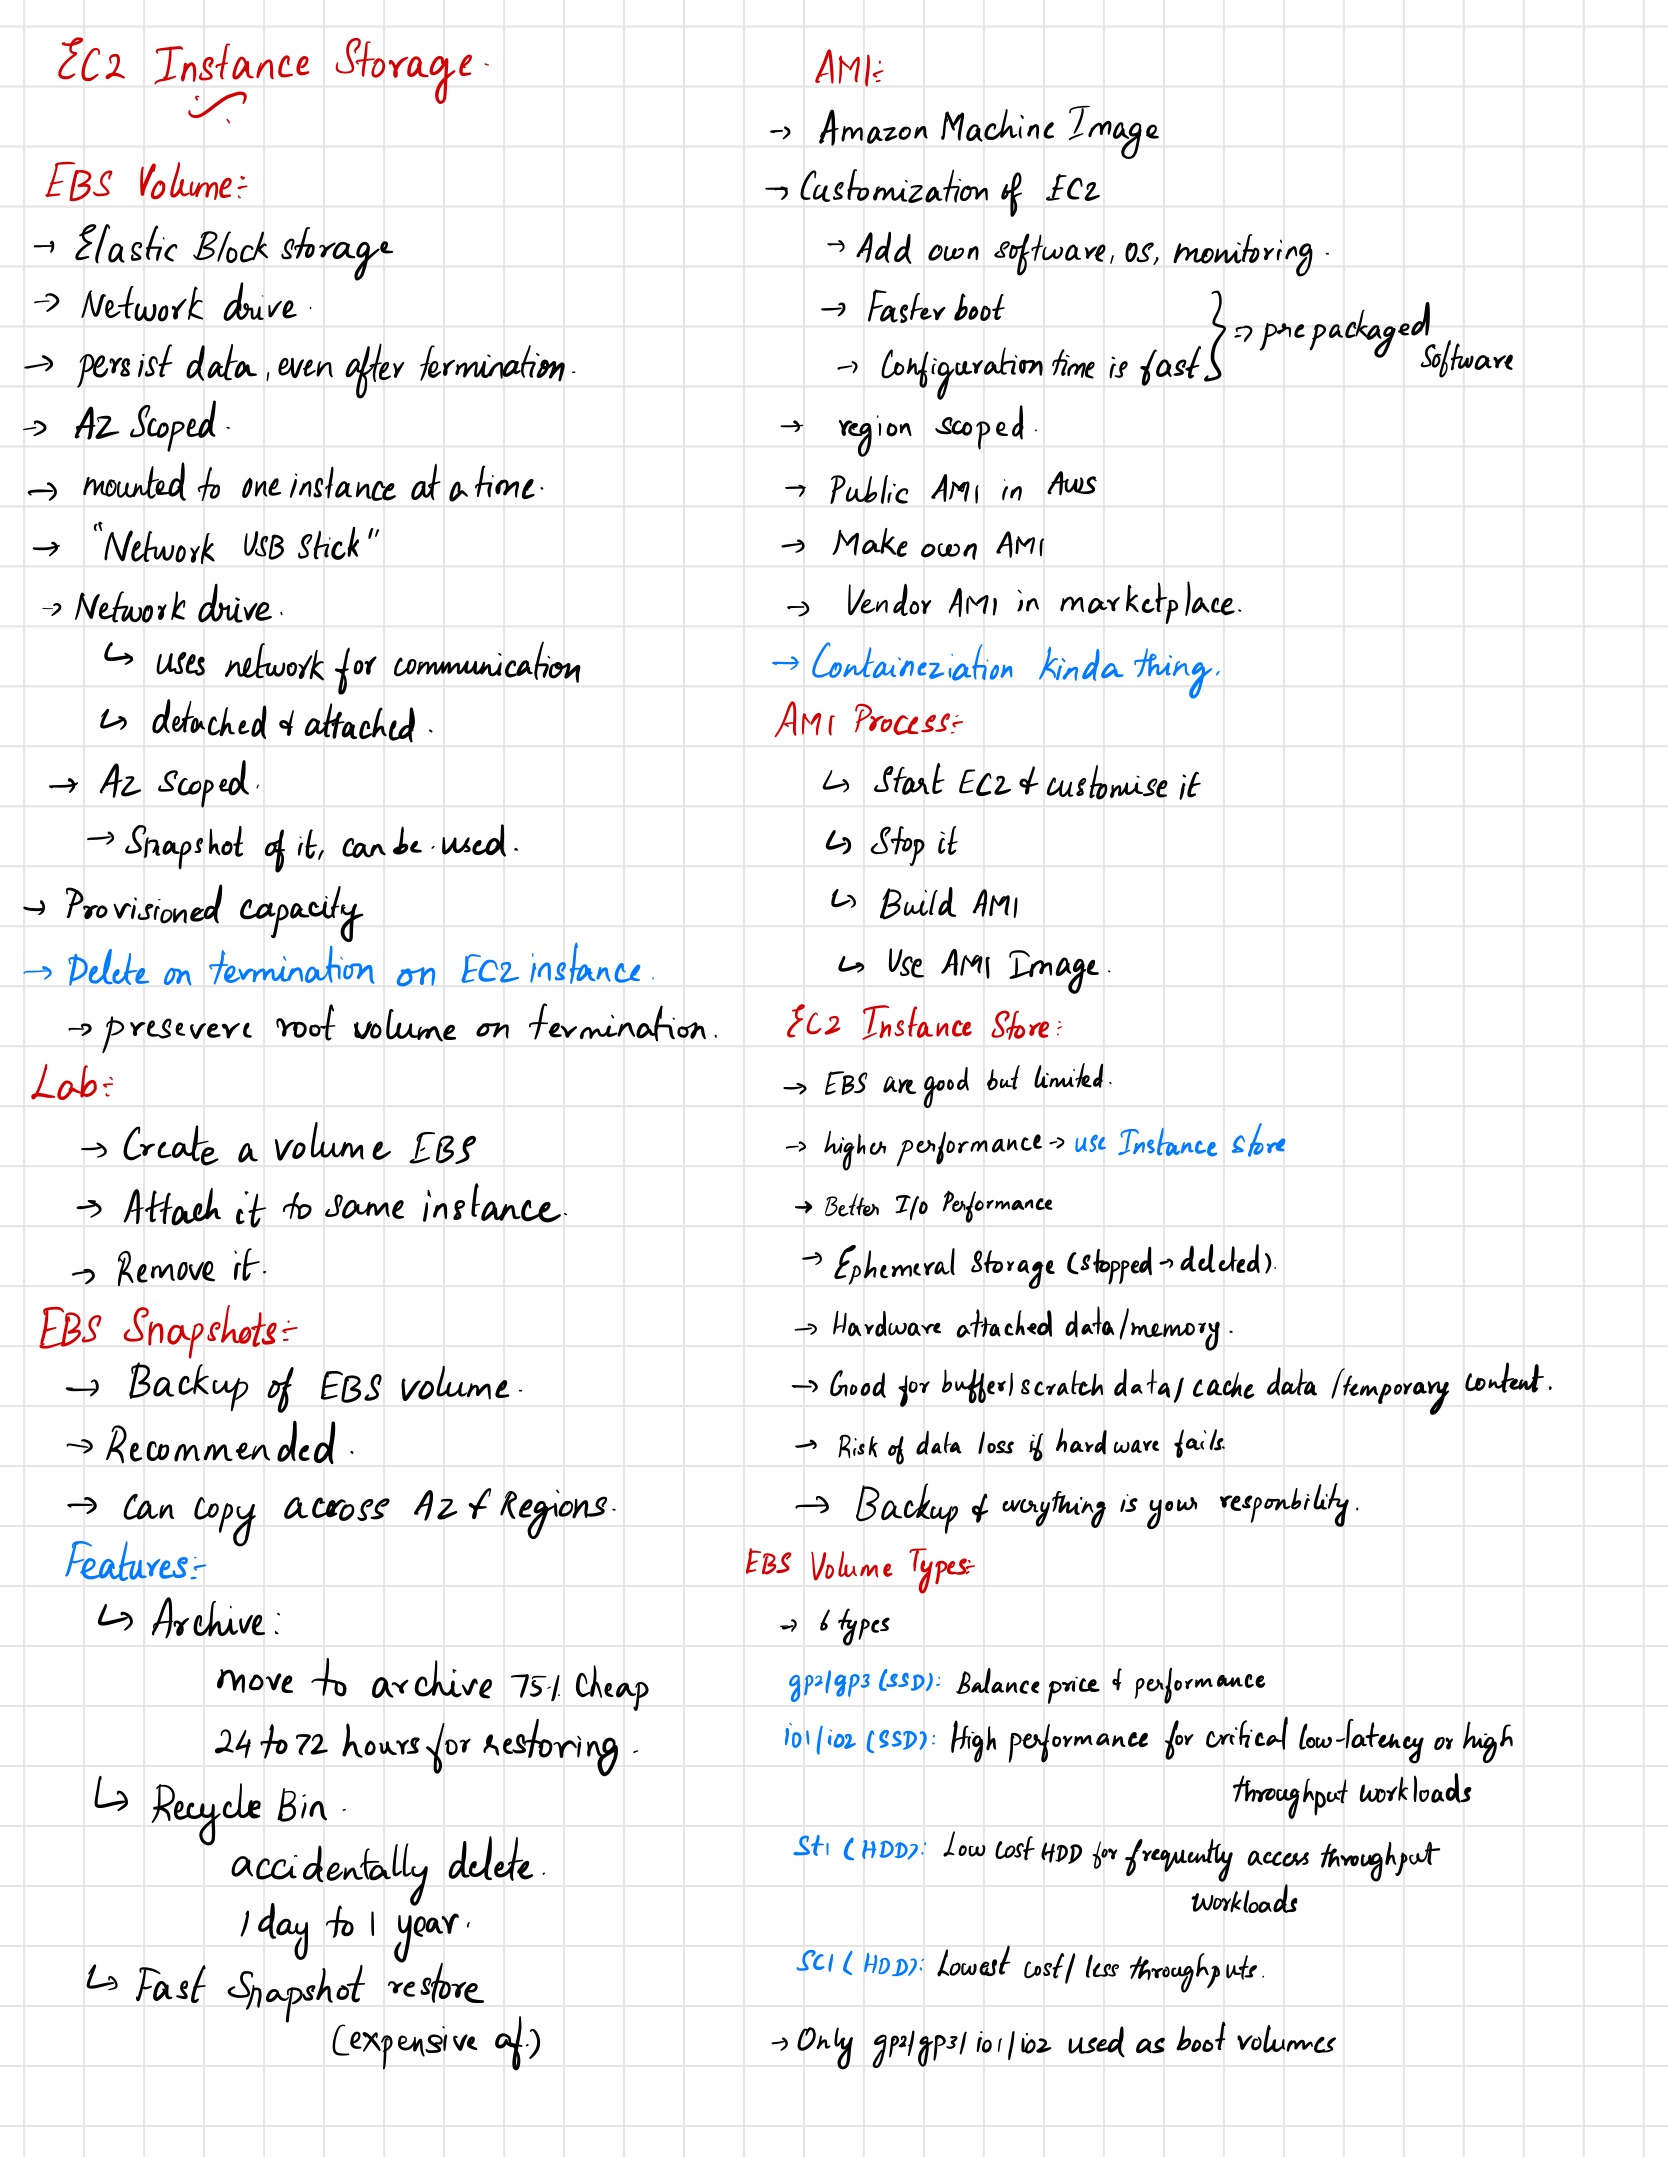 EC2 Instance Storage.
EBS Volume:-
→ Elastic Block storage
→ Network drive.
→ persist data, even after termination.
→ AZ Scoped.
→ mounted to one instance at a time.
→ "Network USB Stick"
→ Network drive.
↳ uses network for communication
↳ detached & attached.
→ AZ Scoped.
→ Snapshot of it, can be used.
→ Provisioned capacity
→ Delete on termination on EC2 instance.
→ presevere root volume on termination.
Lab:-
→ Create a volume EBS
→ Attach it to same instance.
→ Remove it.
EBS Snapshots:-
→ Backup of EBS volume.
→ Recommended.
→ can copy across AZ & Regions.
Features:-
↳ Archive:
move to archive 75% cheap
24 to 72 hours for restoring.
↳ Recycle Bin.
accidentally delete.
1 day to 1 year.
↳ Fast Snapshot restore
(expensive af.)
AMI:-
→ Amazon Machine Image
→ Customization of EC2
→ Add own software, OS, monitoring.
→ Faster boot
→ Configuration time is fast } ⇒ prepackaged
Software
→ region scoped.
→ Public AMI in AWS
→ Make own AMI
→ Vendor AMI in marketplace.
→ Containeziation kinda thing.
AMI Process:-
↳ Start EC2 & customise it
↳ Stop it
↳ Build AMI
↳ Use AMI Image.
EC2 Instance Store:
→ EBS are good but limited.
→ higher performance → use Instance store
→ Better I/o Performance
→ Ephemeral Storage (stopped → deleted).
→ Hardware attached data/memory.
→ Good for buffer/scratch data/cache data/temporary content.
→ Risk of data loss if hardware fails.
→ Backup & everything is your responbility.
EBS Volume Types:-
→ 6 types
gp2/gp3 (SSD): Balance price & performance
io1/io2 (SSD): High performance for critical low-latency or high
throughput workloads
St1 (HDD): Low cost HDD for frequently access throughput
workloads
SC1 (HDD): Lowest cost/ less throughputs.
→ Only gp2/gp3/io1/io2 used as boot volumes